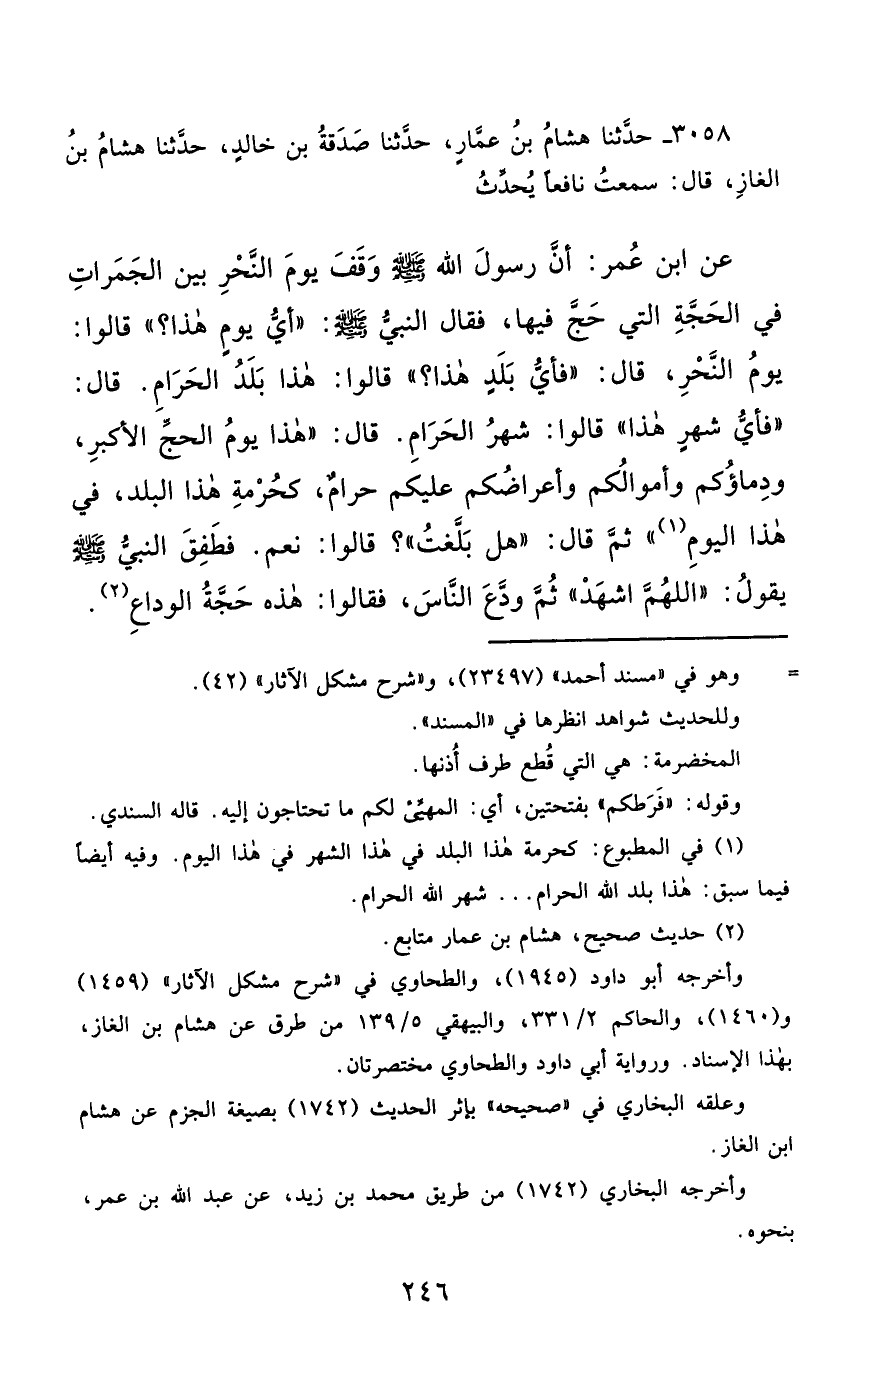 ٣٠٥٨ـ حدَّثنا هشامُ بنُ عمَّارٍ، حدَّثنا صَدَقةُ بن خالدٍ، حدَّثنا هشامُ بنُ
الغازِ، قال: سمعتُ نافعاً يُحدِّثُ
عن ابن عُمر: أنَّ رسولَ الله ﷺ وَقَفَ يومَ النَّحْرِ بين الجَمَراتِ
في الحَجَّةِ التي حَجَّ فيها، فقال النبيُّ ﷺ: «أيُّ يومٍ هٰذا؟» قالوا:
يومُ النَّحْرِ، قال: «فأيُّ بَلَدٍ هٰذا؟» قالوا: هٰذا بَلَدُ الحَرَامِ. قال:
«فأيُّ شهرٍ هٰذا» قالوا: شهرُ الحَرَامِ. قال: «هٰذا يومُ الحجِّ الأكبرِ،
ودِماؤُكم وأموالُكم وأعراضُكم عليكم حرامٌ، كحُرْمةِ هٰذا البلد، في
هٰذا اليومِ(١)» ثمَّ قال: «هل بَلَّغتُ»؟ قالوا: نعم. فطَفِقَ النبيُّ ﷺ
يقولُ: «اللهُمَّ اشهَدْ» ثُمَّ ودَّعَ النَّاسَ، فقالوا: هٰذه حَجَّةُ الوداعِ(٢).
= وهو في «مسند أحمد» (٢٣٤٩٧)، و«شرح مشكل الآثار» (٤٢).
وللحديث شواهد انظرها في «المسند».
المخضرمة: هي التي قُطع طرف أُذنها.
وقوله: «فَرَطكم» بفتحتين، أي: المهيِّئ لكم ما تحتاجون إليه. قاله السندي.
(١) في المطبوع: كحرمة هٰذا البلد في هٰذا الشهر في هٰذا اليوم. وفيه أيضاً
فيما سبق: هٰذا بلد الله الحرام... شهر الله الحرام.
(٢) حديث صحيح، هشام بن عمار متابع.
وأخرجه أبو داود (١٩٤٥)، والطحاوي في «شرح مشكل الآثار» (١٤٥٩)
و(١٤٦٠)، والحاكم ٣٣١/٢، والبيهقي ١٣٩/٥ من طرق عن هشام بن الغاز،
بهٰذا الإسناد. ورواية أبي داود والطحاوي مختصرتان.
وعلقه البخاري في «صحيحه» بإثر الحديث (١٧٤٢) بصيغة الجزم عن هشام
ابن الغاز.
وأخرجه البخاري (١٧٤٢) من طريق محمد بن زيد، عن عبد الله بن عمر،
بنحوه.
٢٤٦